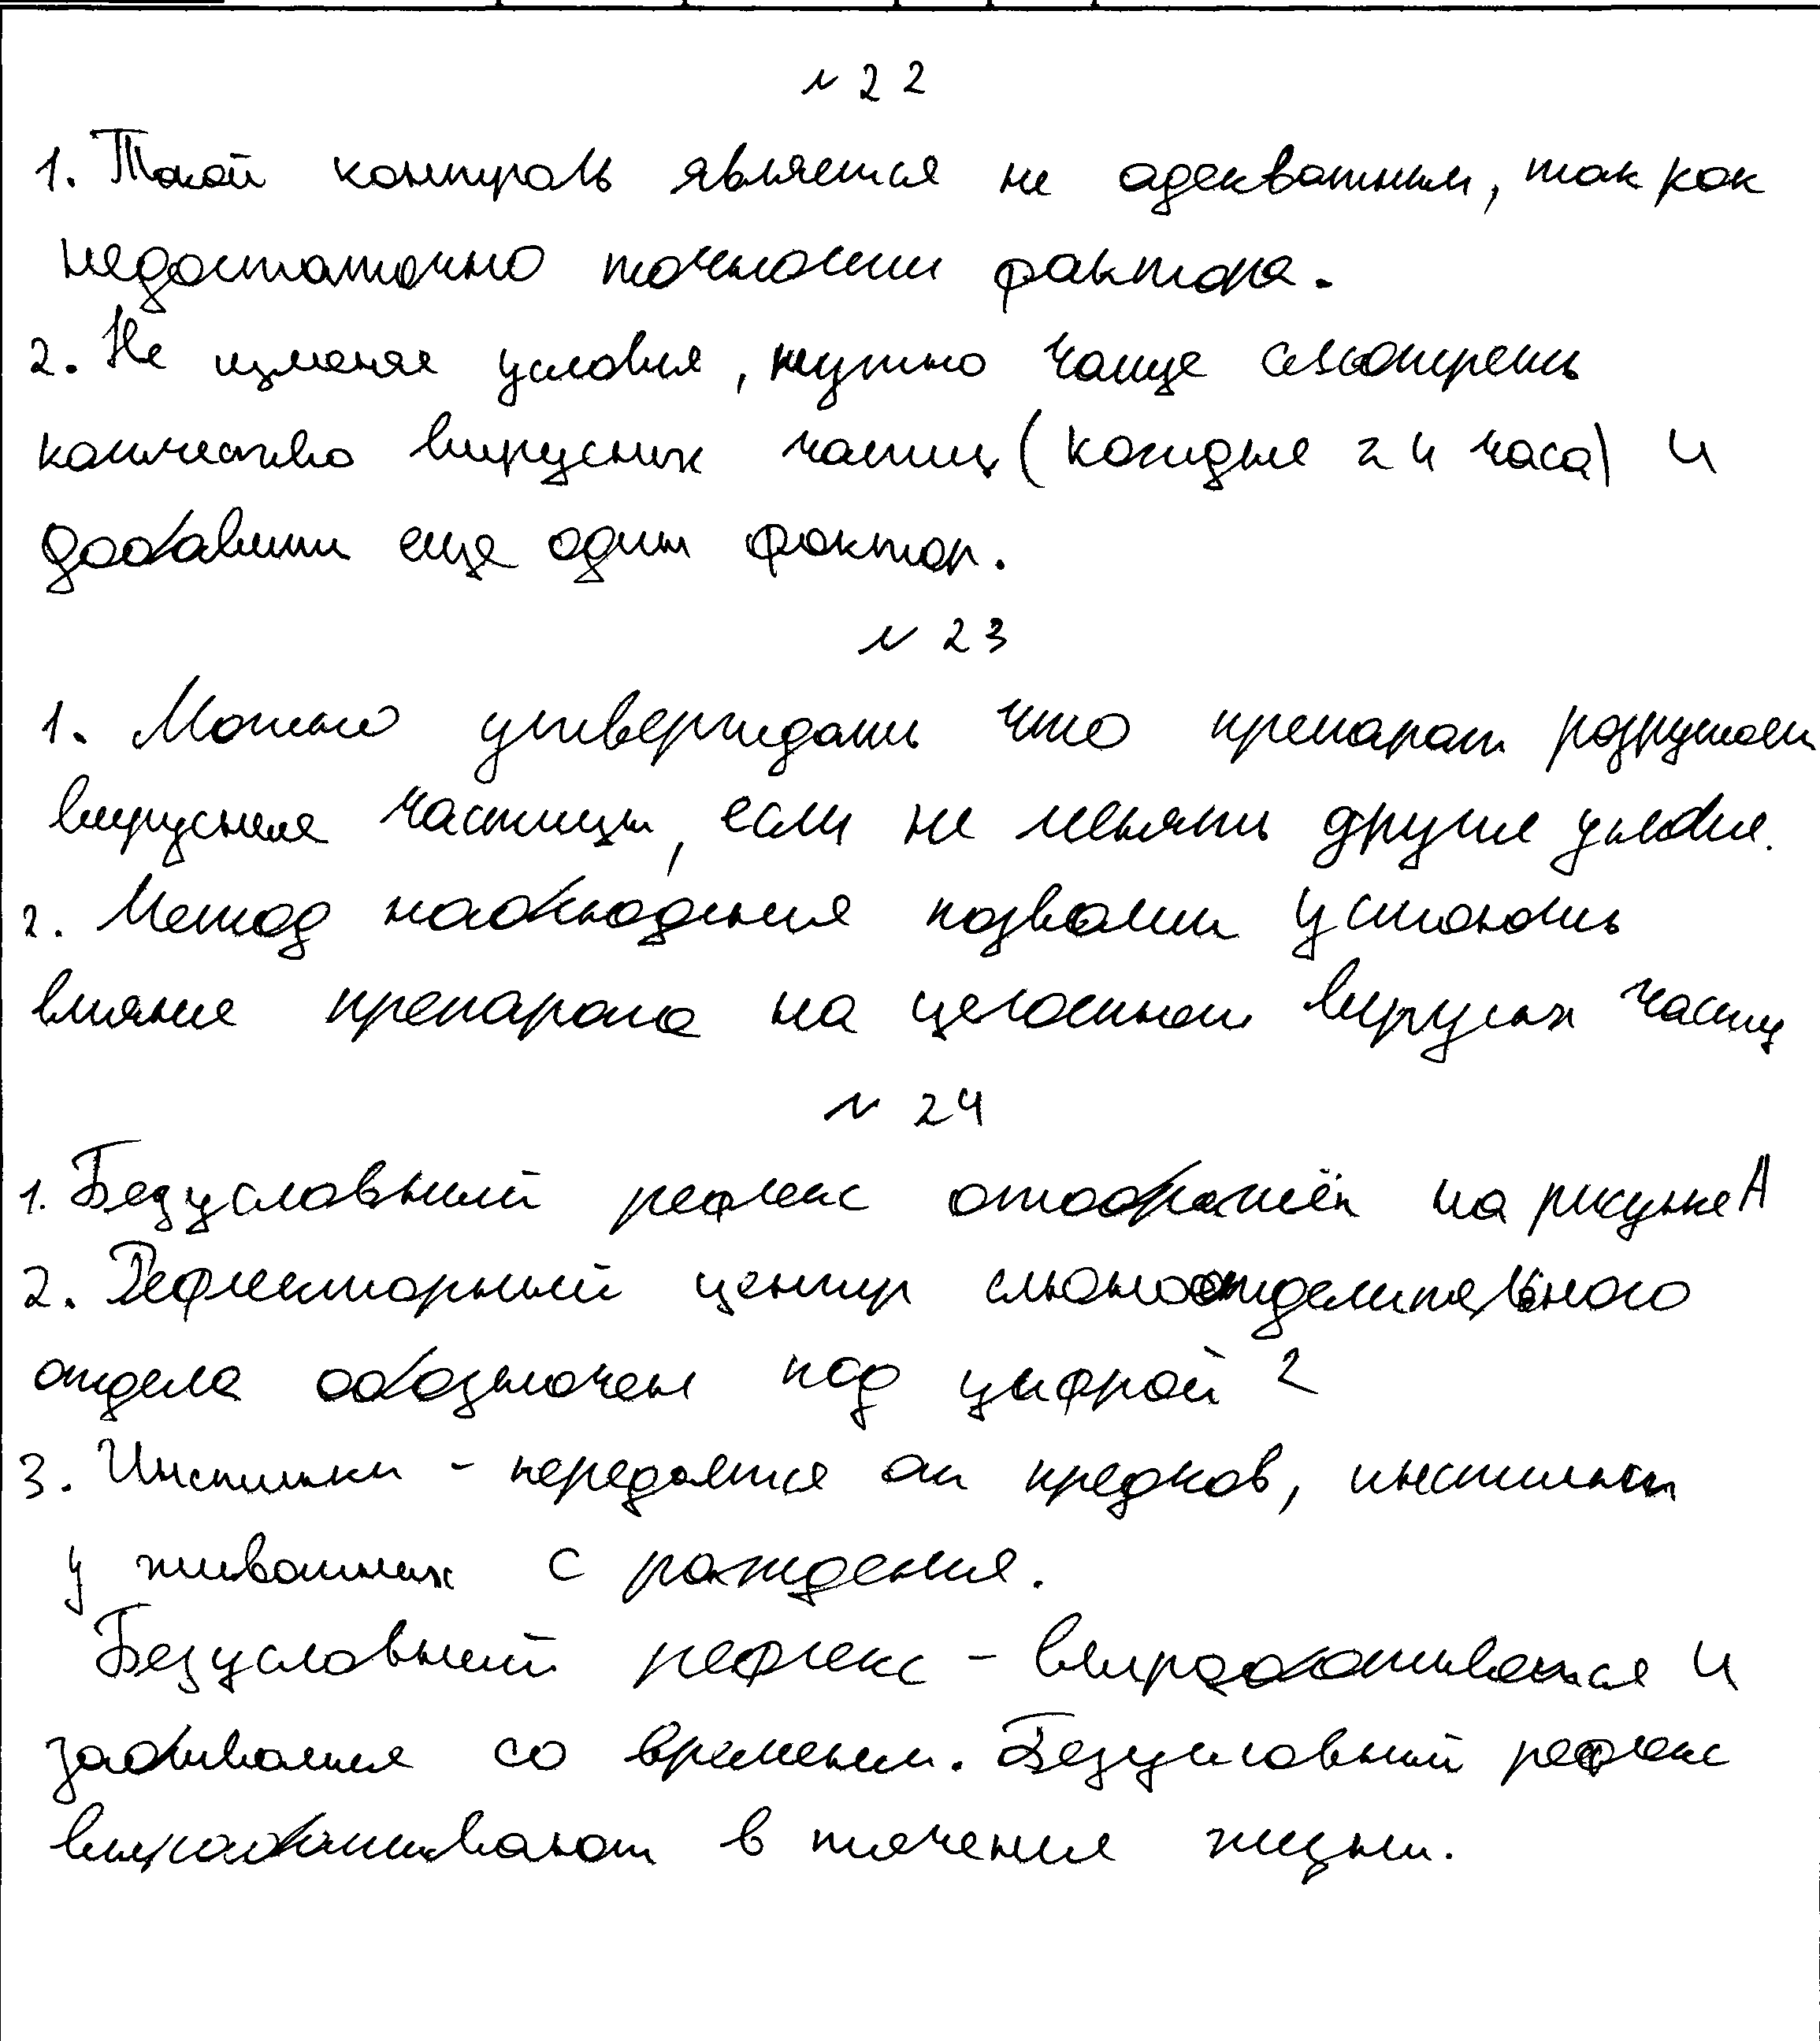 N 22
1. Такой контроль является не адекватным, так как
недостаточно точности фактора.
2. Не изменяе условия, нужно чаще смотреть
количество вирусных частиц (каждые 24 часа) и
добавить еще один фактор.
N 23
1. Можно утверждать что препарат разрушает
вирусные частицы, если не менять другие условия.
2. Метод наблюдения позволил
влияние препарата на целостность вирусных частиц
N 24
1. Безусловный рефлекс отображён на рисунке А
2. Рефлекторный центр слюноотделительного
отдела обозначен под цифрой 2
3. Инстинкы - передаются от предков, инстинкты
у животных с рождения.
Безусловный рефлекс - вырабатывается и
забывается со временем. Безусловный рефлекс
вырабатывают в течение жизни.